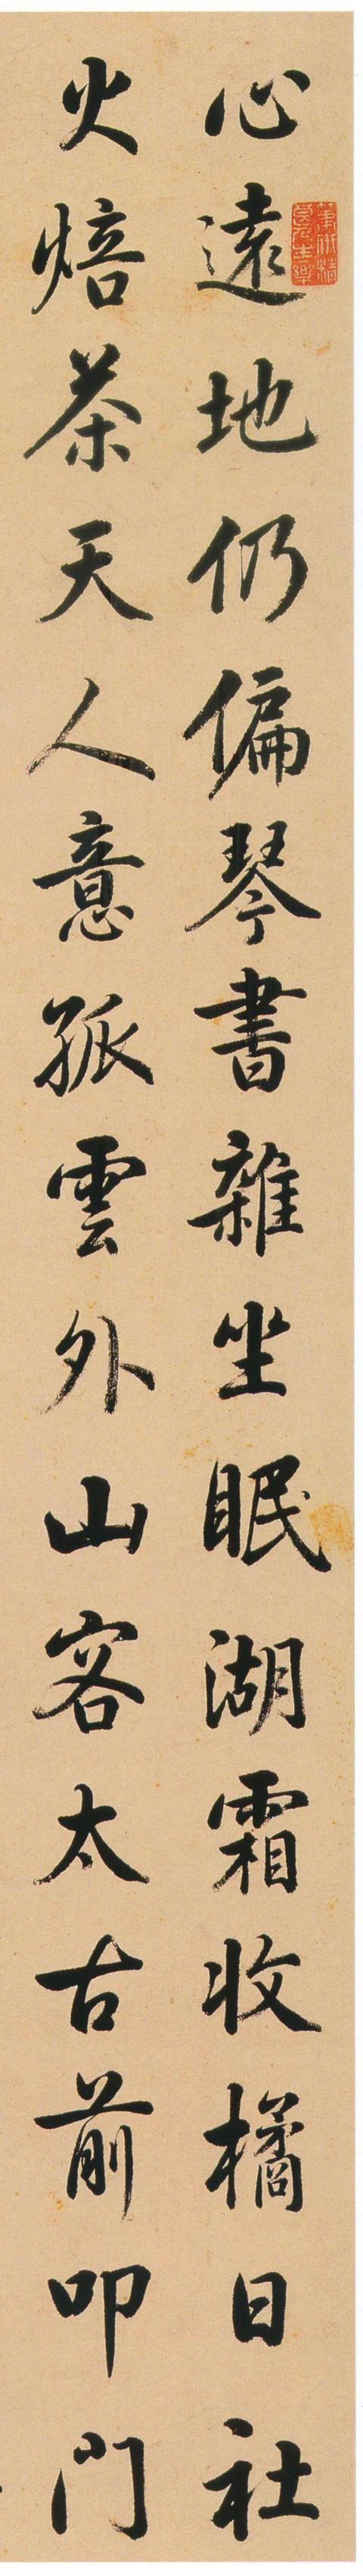 心遠地仍偏琴書雜坐眠湖霜收橘日社
火焙茶天人意孤雲外山容太古前叩門